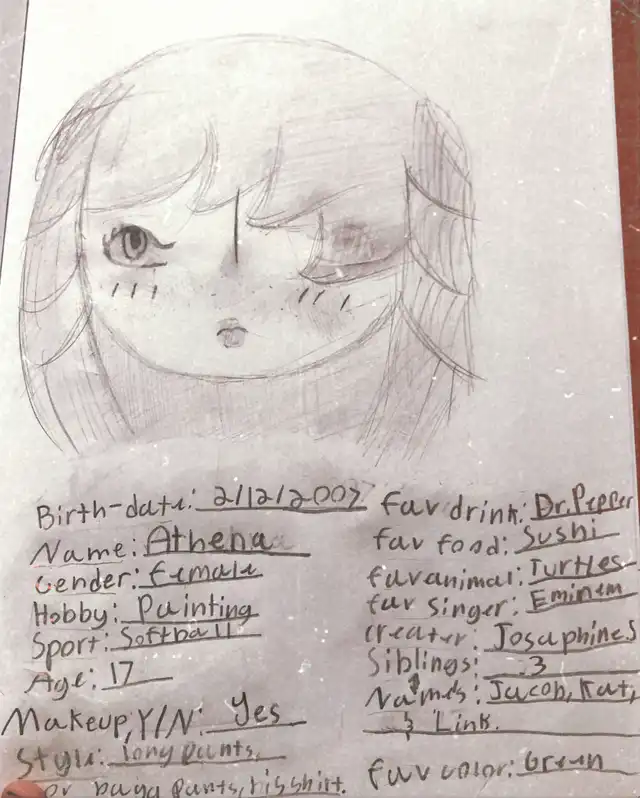 Birth-date: 2/12/2007
Name: Athena
Gender: female
Hobby: Painting
Sport: Softball
Age: 17
Makeup, Y/N: Yes
Style: long pants,
or baga pants, big shirt.
fav drink: Dr. Pepper
fav food: Sushi
fav animal: Turtles
fav singer: Eminem
creater: Josaphine S
Siblings: 3
Names: Jacob, Kat,
& Link.
fav color: Green